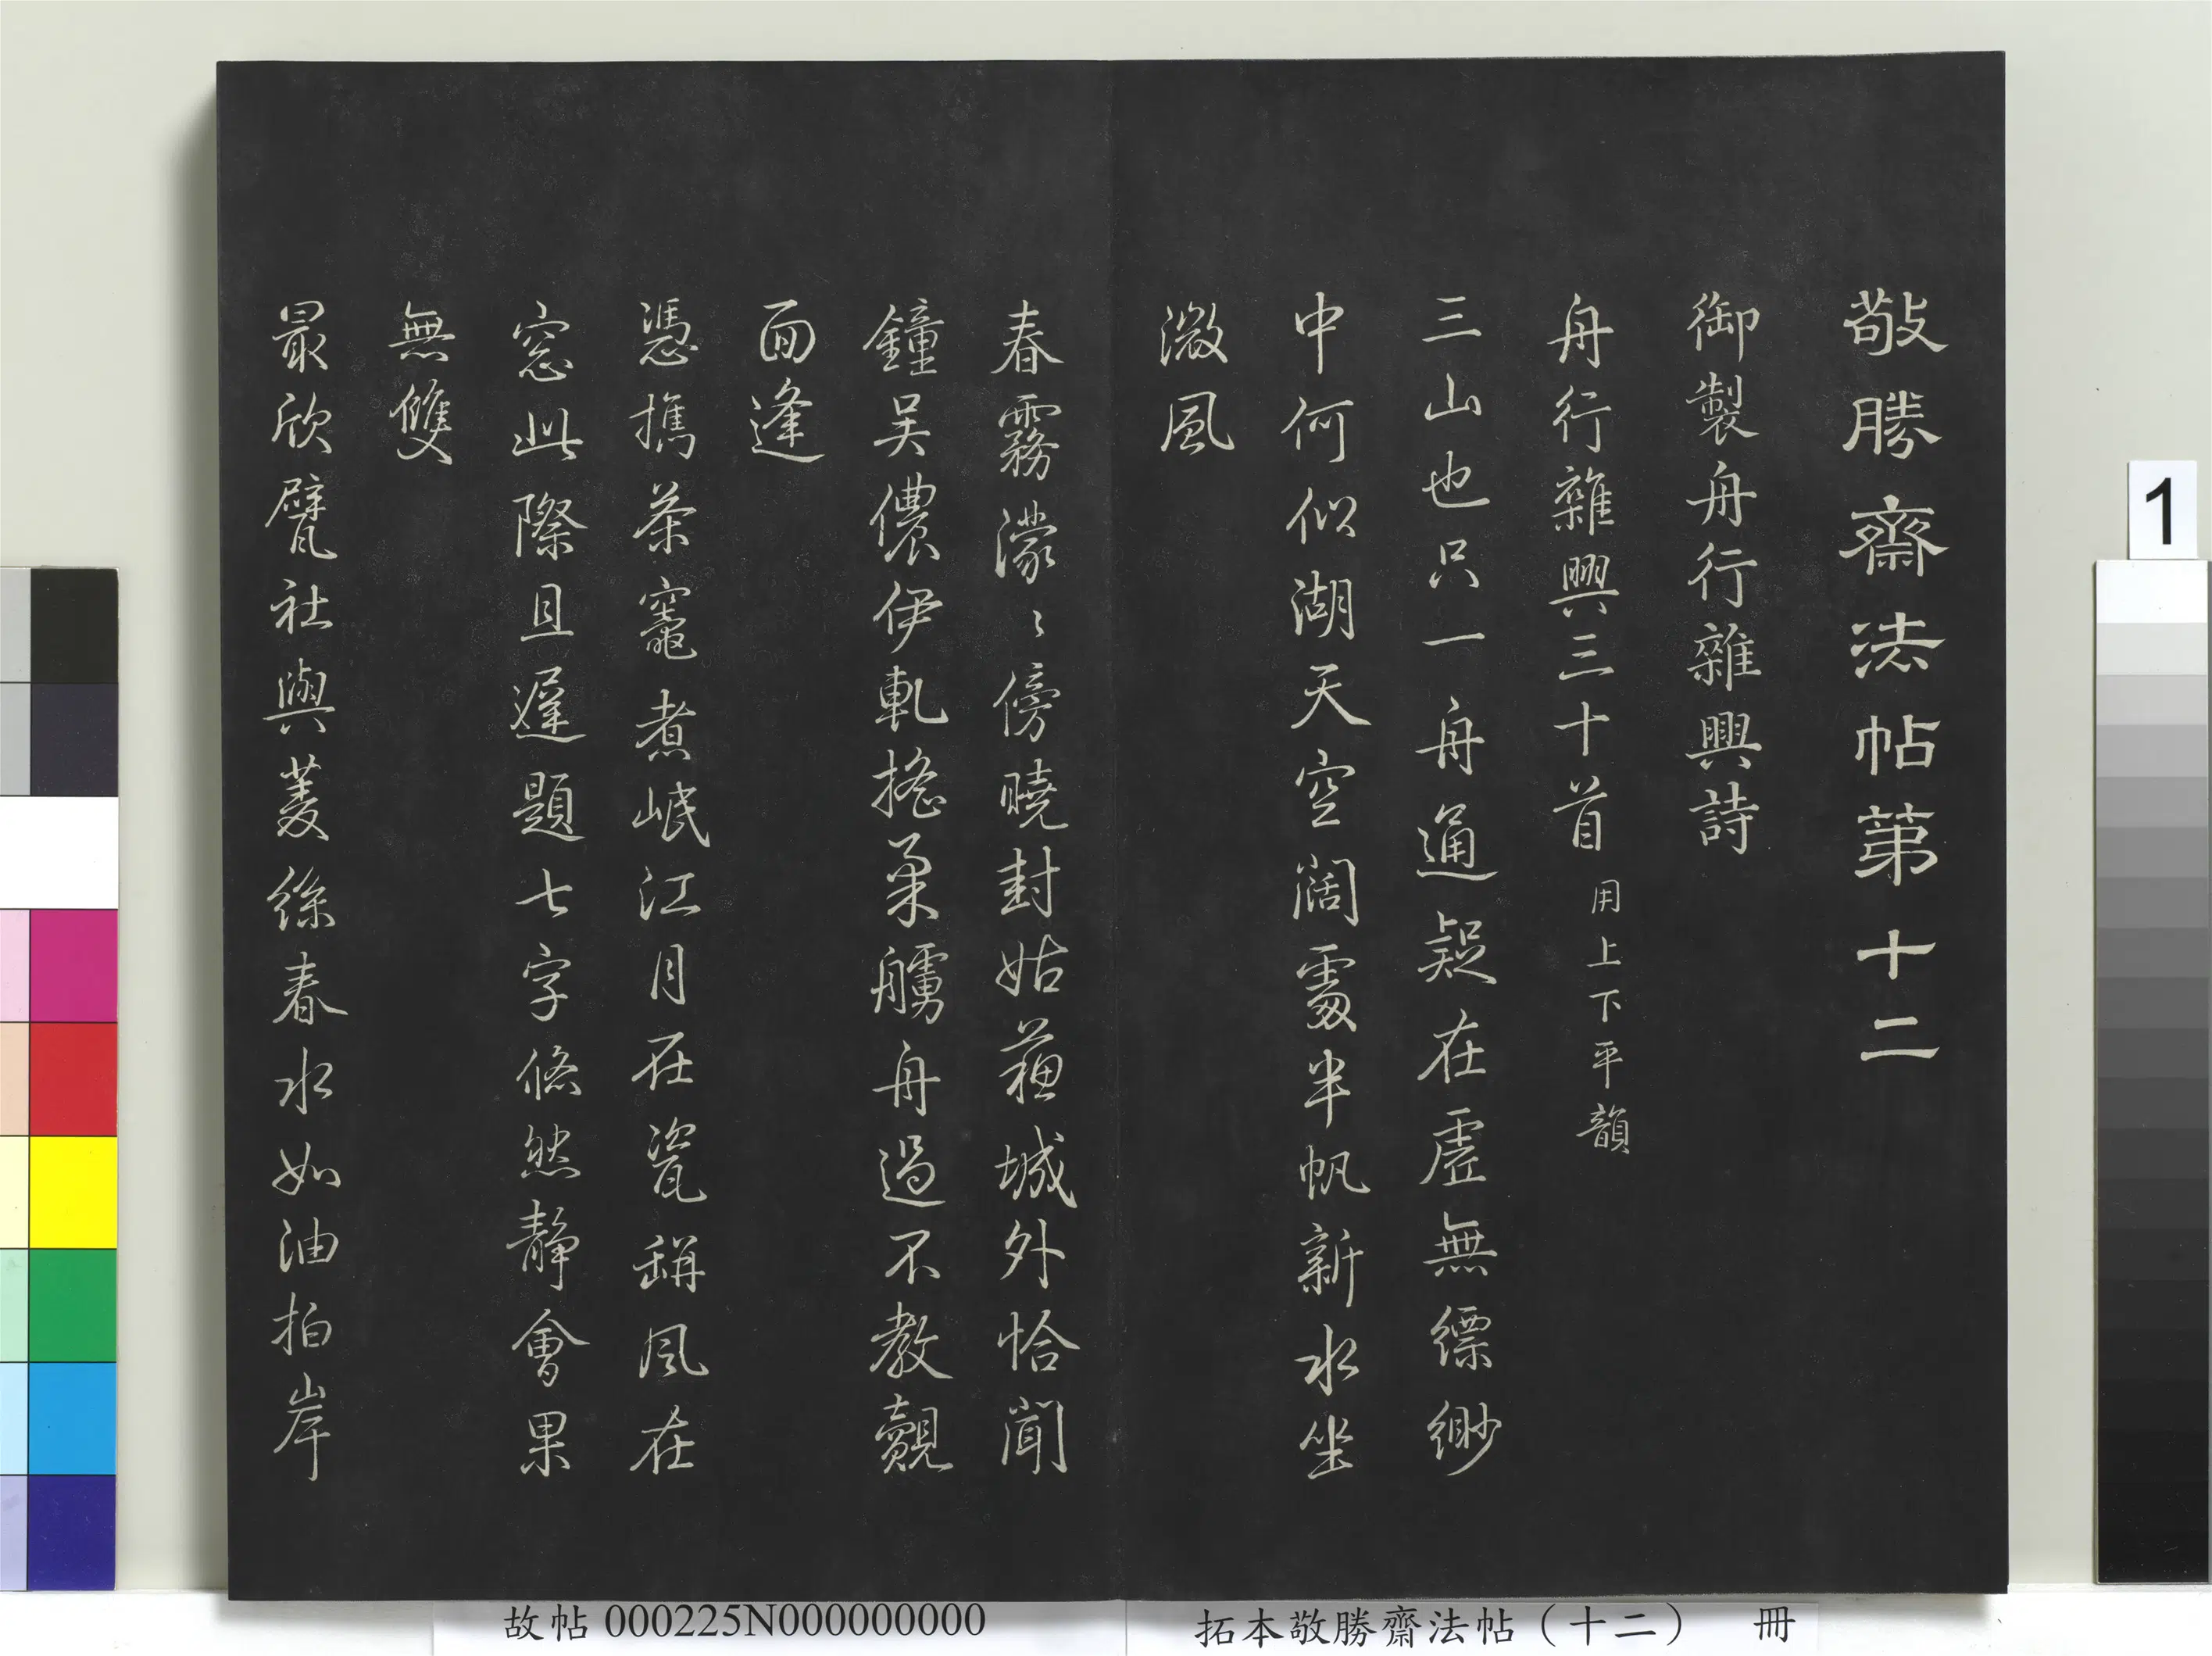 敬勝齋法帖第十二
御製舟行雜興詩
舟行雜興三十首用上下平韻
三山也只一舟通疑在虛無縹緲
中何似湖天空闊處半帆新水坐
微風
春霧濛〻傍曉封姑蘇城外恰聞
鐘吴儂伊軋搖柔艣舟過不教覿
面逢
憑攜茶竈煮岷江月在瓷缾風在
窓此際且遲題七字翛然靜會果
無雙
最欣甓社與菱絲春水如油拍岸
1
故帖000225N000000000
拓本敬勝齋法帖（十二） 冊